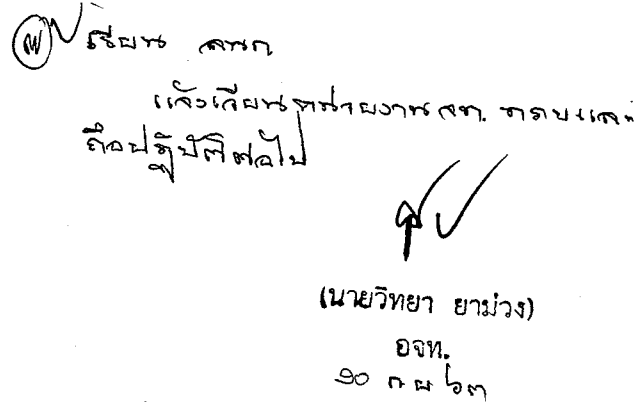 เรียน สนก
แจ้งเวียนทุกหน่วยงาน จท. ทราบและ
ถือปฏิบัติต่อไป
(นายวิทยา ยาม่วง)
อจท.
๑๐ กย ๖๓